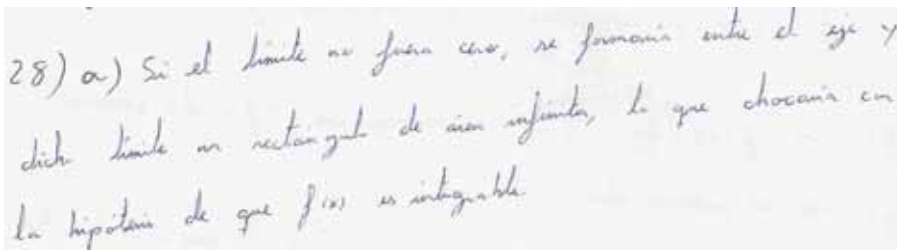 28) a) Si el límite no fuera cero, se formaría entre el eje y
dicho límite un rectángulo de área infinita, lo que chocaría con
la hipótesis de que f(x) es integrable